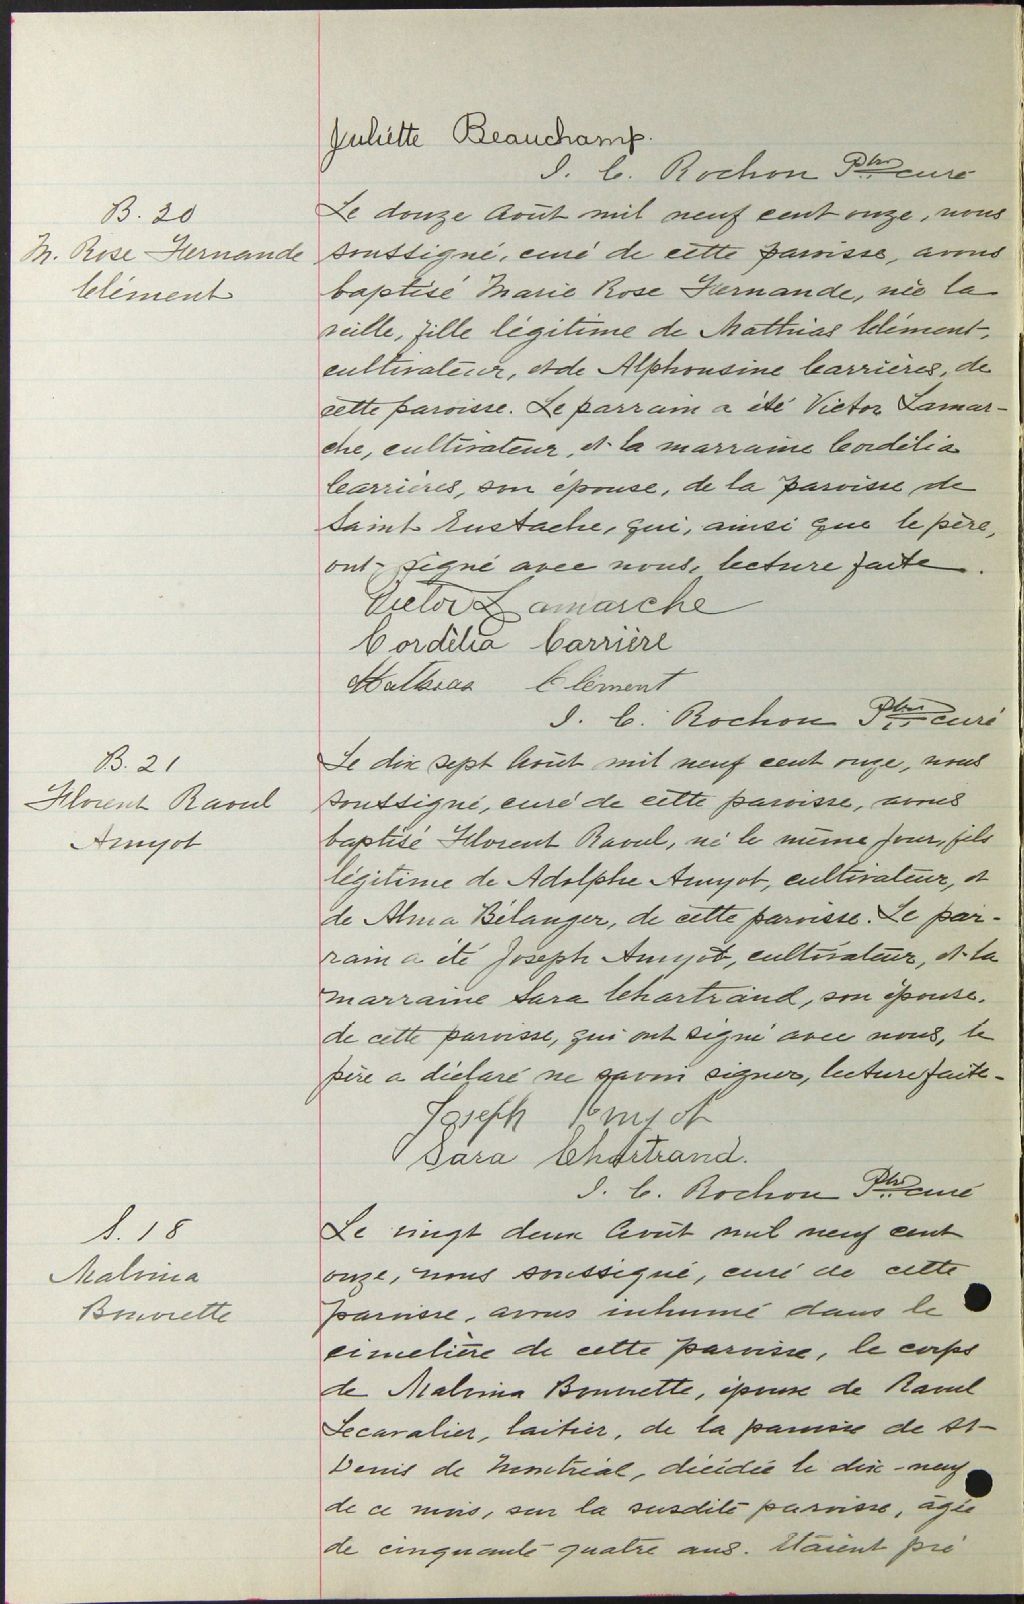 Juliette Beauchamp.
J. C. Rochon Ptre curé
B. 20
M. Rose Fernande
Clément
Le douze Août mil neuf cent onze, nous
soussigné, curé de cette paroisse, avons
baptisé Marie Rose Fernande, née la
veille, fille légitime de Mathias Clément,
cultivateur, et de Alphonsine Carrières, de
cette paroisse. Le parrain a été Victor Lamar-
che, cultivateur, et la marraine Cordélia
Carrières, son épouse, de la paroisse de
Saint Eustache, qui, ainsi que le père,
ont signé avec nous, lecture faite.
Victor Lamarche
Cordèlia Carrière
Mathias Clément
J. C. Rochon Ptre curé
B. 21
Florent Raoul
Amyot
Le dix sept Août mil neuf cent onze, nous
soussigné, curé de cette paroisse, avons
baptisé Florent Raoul, né le même jour, fils
légitime de Adolphe Amyot, cultivateur, et
de Alma Bélanger, de cette paroisse. Le par-
rain a été Joseph Amyot, cultivateur, et la
marraine Sara Chartrand, son épouse,
de cette paroisse, qui ont signé avec nous, le
père a déclaré ne savoir signer, lecture faite-
Joseph Amyot
Sara Chartrand.
J. C. Rochon Ptre curé
S. 18
Malvina
Bouvrette
Le vingt deux Août mil neuf cent
onze, nous soussigné, curé de cette
paroisse, avons inhumé dans le
cimetière de cette paroisse, le corps
de Malvina Bouvrette, épouse de Raoul
Lecavalier, laitier, de la paroisse de St-
Denis de Montréal, décédée le dix-neuf
de ce mois, sur la susdite paroisse, âgée
de cinquante quatre ans. Etaient pré